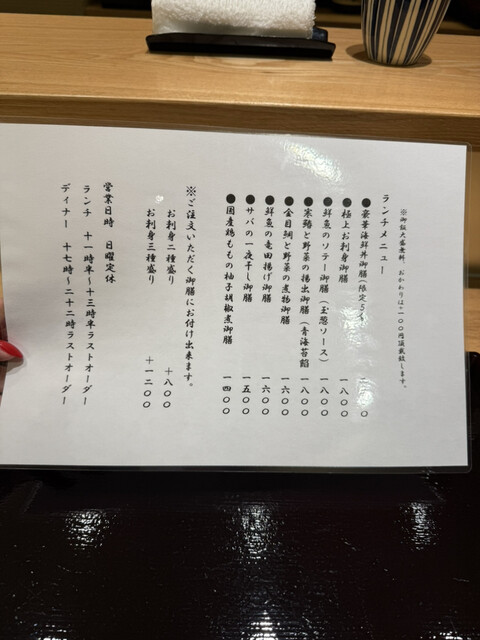 ※御飯大盛無料、おかわりは+一〇〇円頂戴致します。
ランチメニュー
●豪華海鮮丼御膳(限定5食)
●極上お刺身御膳 一八〇〇
●鮮魚のソテー御膳(玉葱ソース) 一八〇〇
●寒鰆と野菜の揚出御膳(青海苔餡) 一八〇〇
●金目鯛と野菜の煮物御膳 一六〇〇
●鮮魚の竜田揚げ御膳 一六〇〇
●サバの一夜干し御膳 一五〇〇
●国産鶏ももの柚子胡椒煮御膳 一四〇〇
※ご注文いただく御膳にお付け出来ます。
お刺身二種盛り +八〇〇
お刺身三種盛り +一二〇〇
営業日時 日曜定休
ランチ 十一時半~十三時半ラストオーダー
ディナー 十七時~二十二時ラストオーダー